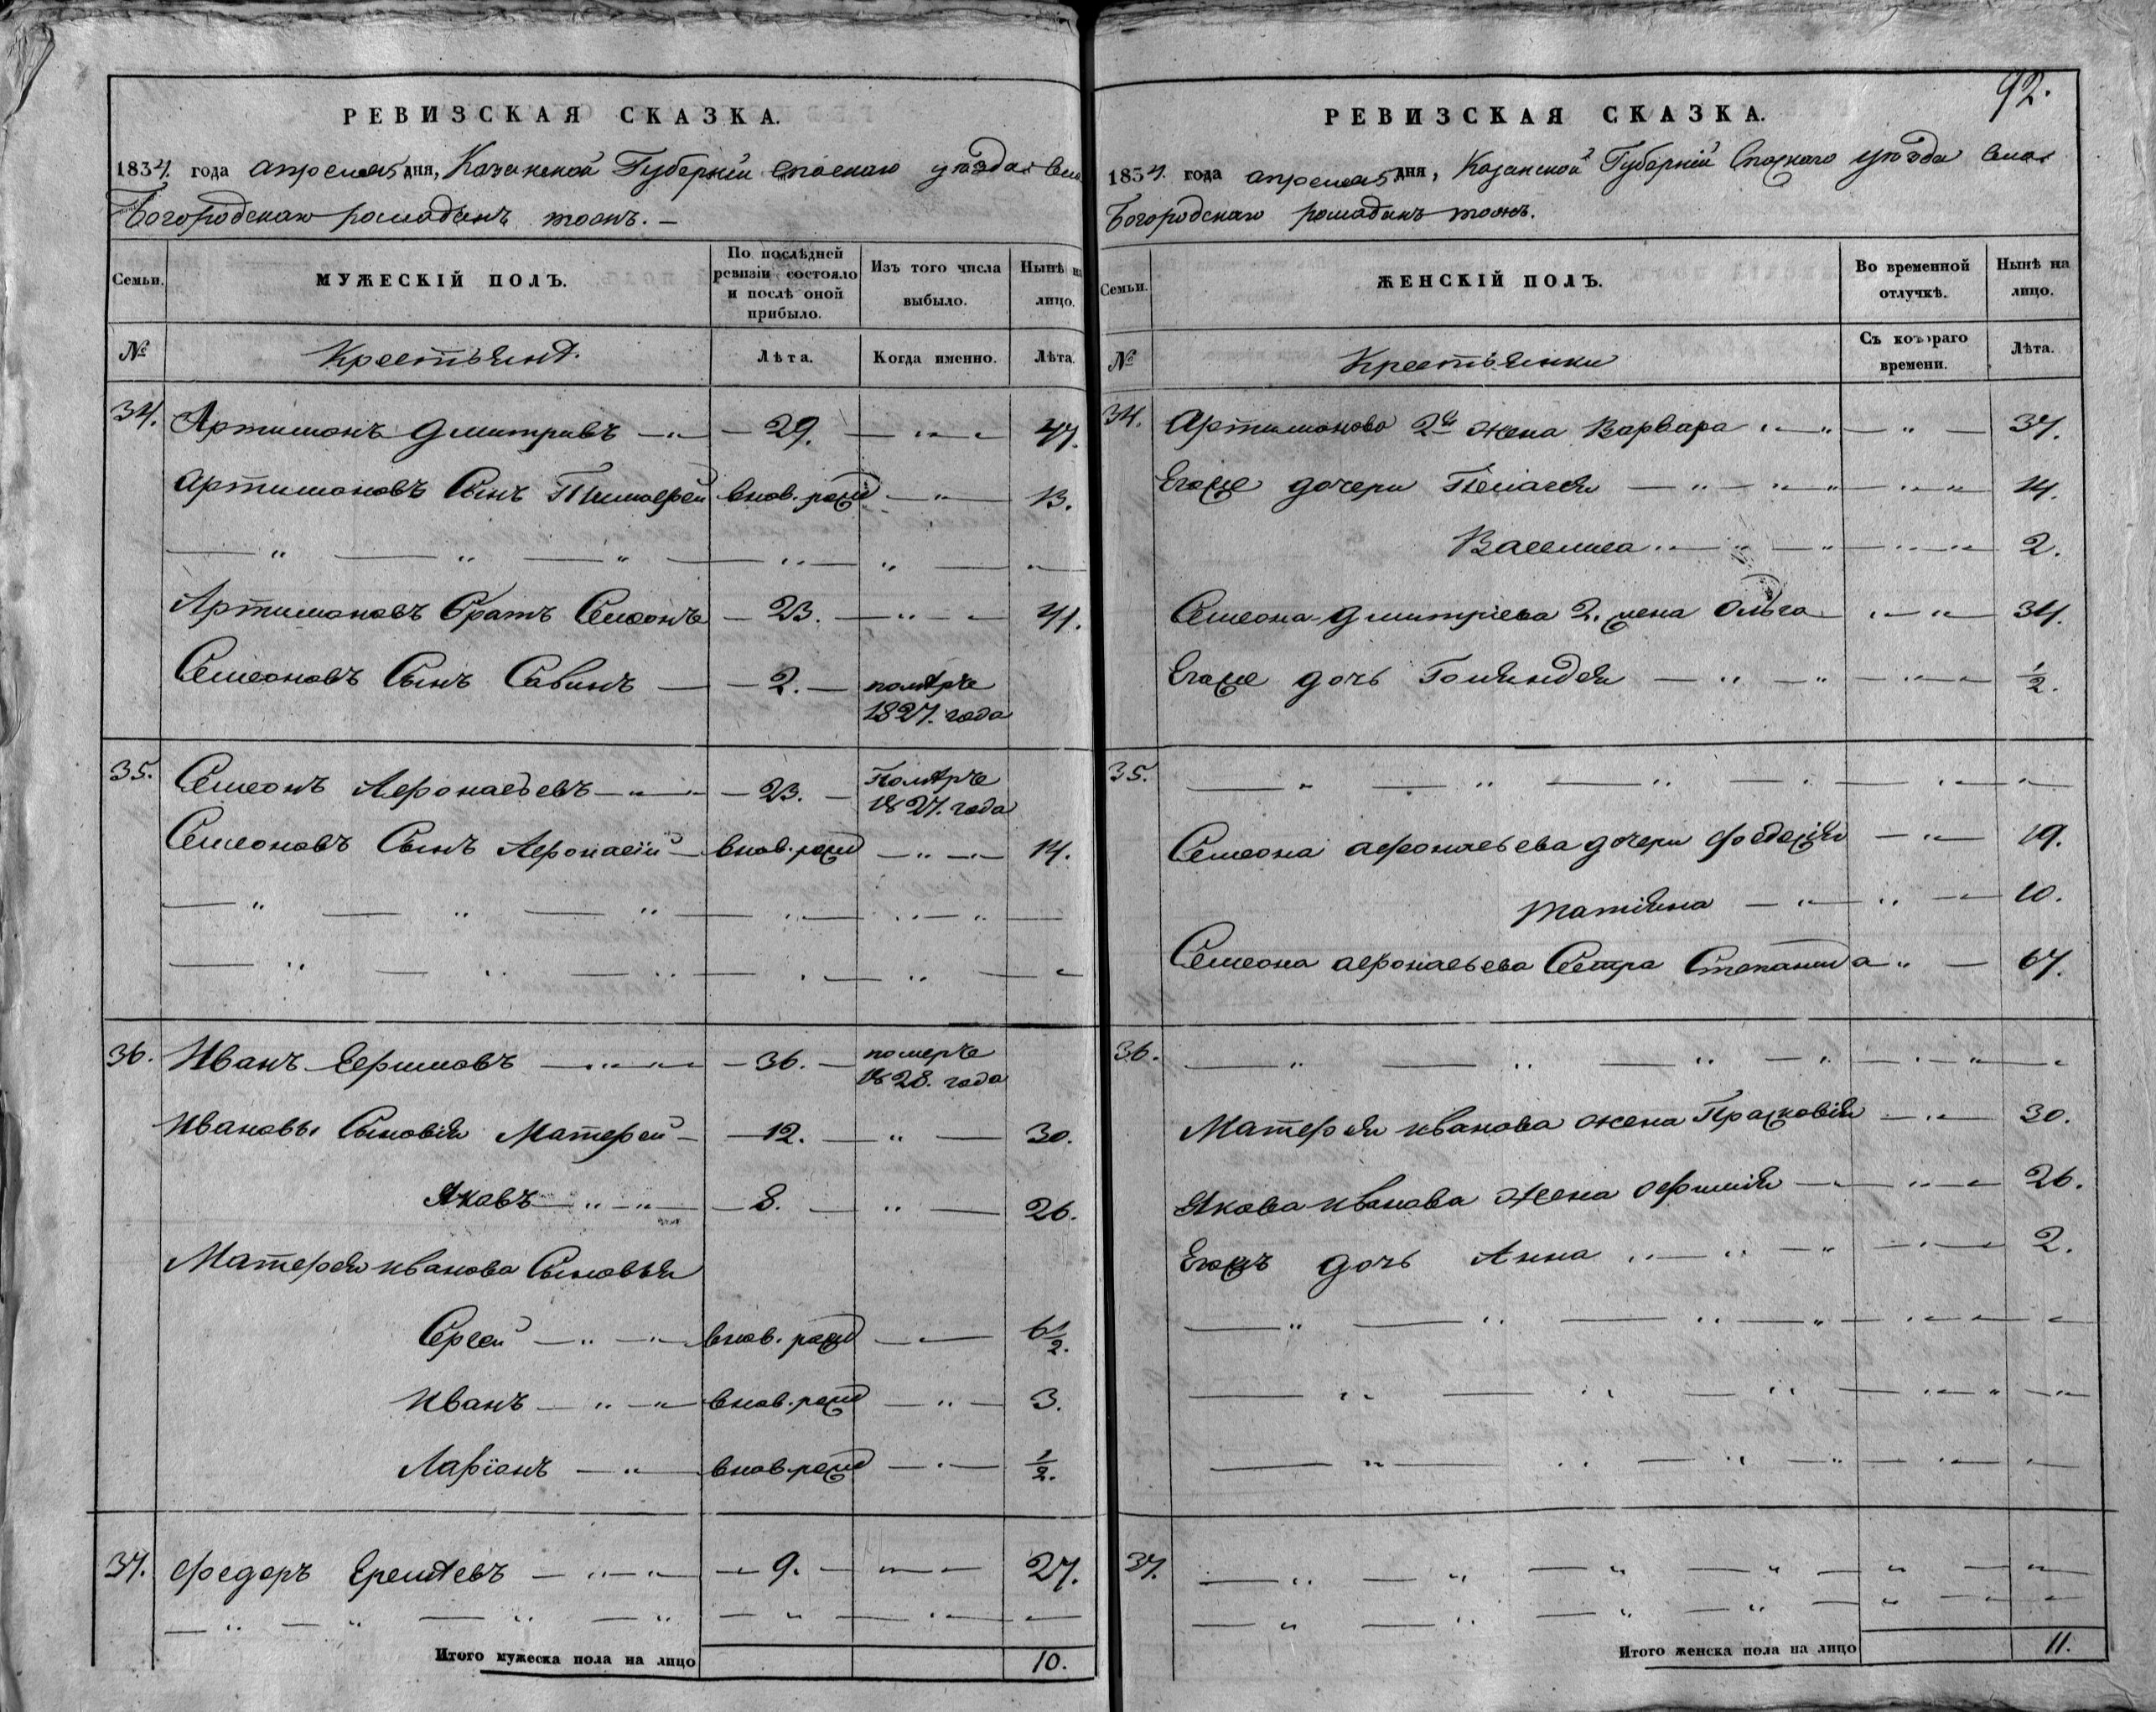 92.
РЕВИЗСКАЯ СКАЗКА.
1834. года апреля 15 дня, Казанской Губерніи спаскаго уѣзда села
Богородскаго рамаданъ тожъ. —
Семьи. МУЖЕСКІЙ ПОЛЪ. По послѣдней ревизіи состояло и послѣ оной прибыло. Изъ того числа выбыло. Нынѣ на лицо.
№ Крестьянѣ. Лѣта. Когда именно. Лѣта.
34. Артимонъ Дмитривъ — 29. — 47.
Артимоновъ Сынъ Тимофей внов. рожд — 13.
Артимоновъ Братъ Семіонъ — 23. — 41.
Семеоновъ Сынъ Савинъ — 2. — помѣръ
1827. года
35. Семеонъ Афонасьевъ — 23. — Помѣръ
1827. года
Семеоновъ Сынъ Афонасій — внов. рожд — 14.
36. Иванъ Ефимовъ — 36. — померъ
1828. года
Ивановы Сыновія Матфей — 12. — 30.
Яковъ — 8. — 26.
Матфея иванова Сыновья
Сергей — внов. рожд — 6 1/2.
Иванъ — внов. рожд — 3.
Ларіонъ — внов. рожд — 1/2.
37. Федоръ Еремѣевъ — 9. — 27.
Итого мужеска пола на лицо 10.
РЕВИЗСКАЯ СКАЗКА.
1834. года апреля 15 дня, Казанской Губерніи Спаскаго уѣзда села
Богородскаго рамаданъ тожъ.
Семьи. ЖЕНСКІЙ ПОЛЪ. Во временной отлучкѣ. Нынѣ на лицо.
№ Крестьянки Съ котораго времени. Лѣта.
34. Артимонова 2я жена Варвара — 37.
Егоже дочери Пелагея — 14.
Василиса — 2.
Семеона Дмитріева 2. жена Ольга — 34.
Егоже дочь — 1/2.
35.
Семеона афонасьева дочери Федосія — 19.
Татіяна — 10.
Семеона афонасьева Сестра Степанида — 67.
36.
Матфея иванова жена Прасковія — 30.
Якова иванова жена Офимія — 26.
Егожъ дочь Анна — 2.
37.
Итого женска пола на лицо 11.